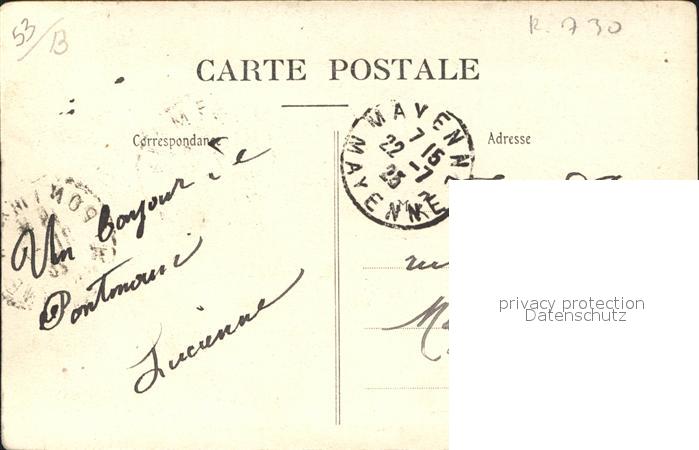 53/B
R.730
CARTE POSTALE
Correspondance
Adresse
MAYENNE
7 15
22 -7
23
MAYENNE
PONTMAIN
Un bonjour de
Pontmain
Lucienne
privacy protection
Datenschutz